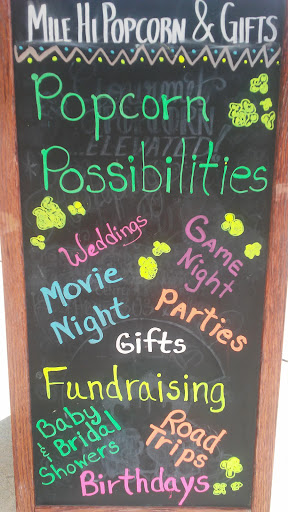 MILE HI POPCORN & GIFTS
Popcorn
Possibilities
Weddings
GAME
Night
Movie
Night
Parties
Gifts
Fundraising
Baby
& Bridal
Showers
Road
Trips
Birthdays